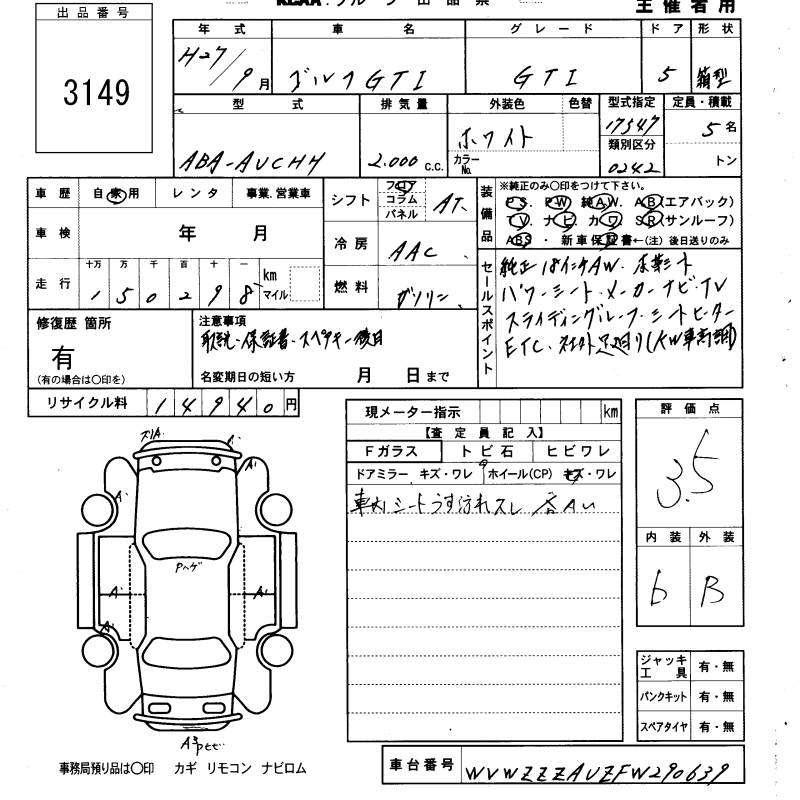 主催者用
出品番号
3149
年式 車名 グレード ドア 形状
H27/9月 ゴルフGTI GTI 5 箱型
型式 排気量 外装色 色替 型式指定 定員・積載
ABA-AUCHH 2.000 c.c. ホワイト 17547 5名
カラーNo. 類別区分
0242 トン
車歴 自家用 レンタ 事業.営業車
車検 年 月
走行 十万 万 千 百 十 一
150298 km マイル
シフト フロア コラム パネル AT
冷房 AAC
燃料 ガソリン
装備品 ※純正のみ〇印をつけて下さい。
PS. PW 純AW. AB(エアバック)
TV. ナビ. カワ SR(サンルーフ)
ABS ・ 新車保証書←(注) 後日送りのみ
セールスポイント
純正18インチAW. 本革シート
パワーシート・メーカーナビ・TV
スライディングルーフ・シートヒーター
ETC. 社外足廻り(KW車高調)
修復歴 箇所
有
(有の場合は〇印を)
注意事項
取説・保証書・スペアキー後日
名変期日の短い方 月 日まで
リサイクル料 14940円
現メーター指示 km
【査定員記入】
Fガラス トビ石 ヒビワレ
ドアミラー キズ・ワレ ホイール(CP) キズ・ワレ
車内シートうす汚れスレ 各AU
評価点
3.5
内装 外装
b B
ジャッキ工具 有・無
パンクキット 有・無
スペアタイヤ 有・無
A
A
A
Pハゲ
A
A
A
事務局預り品は〇印 カギ リモコン ナビロム
車台番号 WVWZZZAUZFW290639